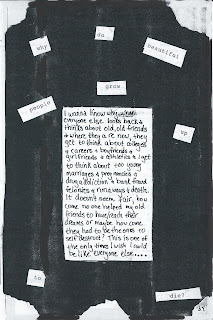 why
do
beautiful
people
grow
up
I wanna know why when
everyone else looks back &
thinks about old, old friends
& where they are now, they
get to think about colleges
& careers & boyfriends &
girlfriends & athletics & I get
to think about too young
marriages & pregnancies &
drug addiction & bank fraud
felonies & runaways & death.
It doesn't seem fair, how
come no one helped my old
friends to have/reach their
dreams or maybe how come
they had to be the ones to
self destruct? This is one of
the only times I wish I could
be like "everyone else....
to
die?